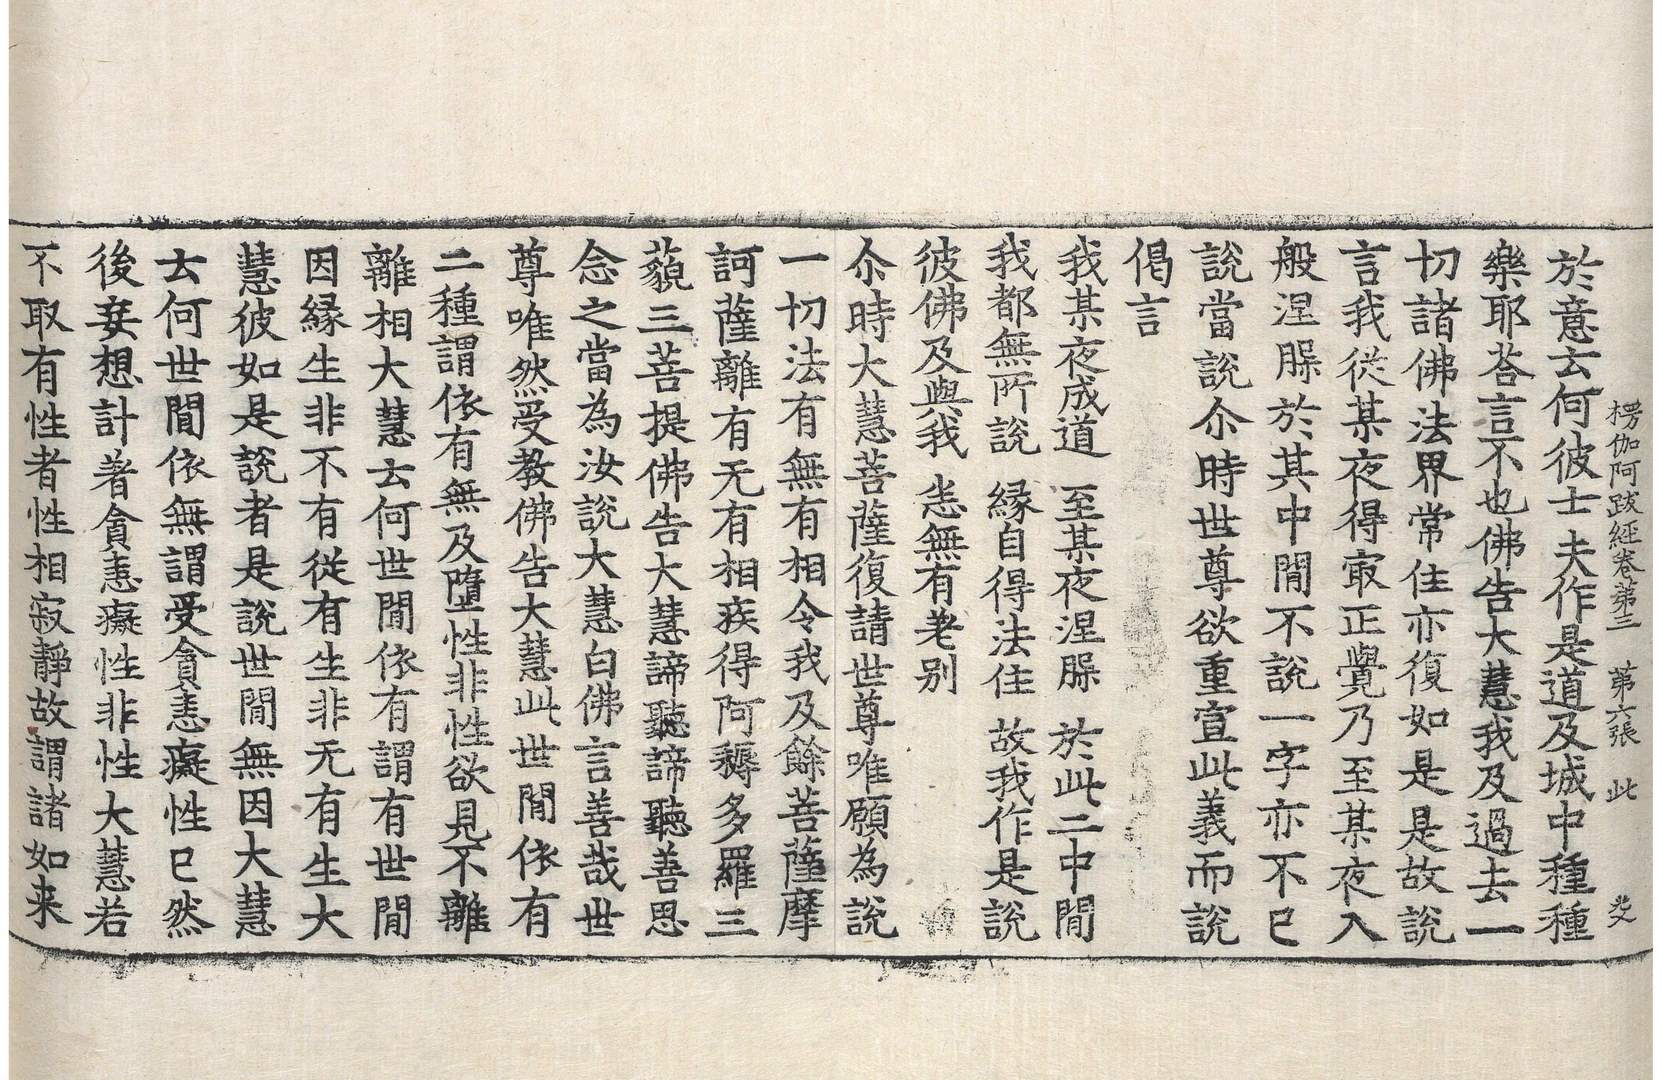 楞伽阿跋經卷第三　第六張　此
於意云何彼士夫作是道及城中種種
樂耶荅言不也佛告大慧我及過去一
切諸佛法界常住亦復如是是故說
言我從某夜得㝡正覺乃至某夜入
般涅槃於其中閒不說一字亦不已
說當說尒時世尊欲重宣此義而說
偈言
我某夜成道　至某夜涅槃　於此二中閒
我都無所說　緣自得法住　故我作是說
彼佛及與我　悉無有差别
尒時大慧菩薩復請世尊唯願為說
一切法有無有相令我及餘菩薩摩
訶薩離有无有相疾得阿耨多羅三
藐三菩提佛告大慧諦聽諦聽善思
念之當為汝說大慧白佛言善哉世
尊唯然受教佛告大慧此世閒依有
二種謂依有無及墮性非性欲見不離
離相大慧云何世閒依有謂有世閒
因緣生非不有從有生非无有生大
慧彼如是說者是說世閒無因大慧
云何世閒依無謂受貪恚癡性已然
後妄想計著貪恚癡性非性大慧若
不取有性者性相寂靜故謂諸如来